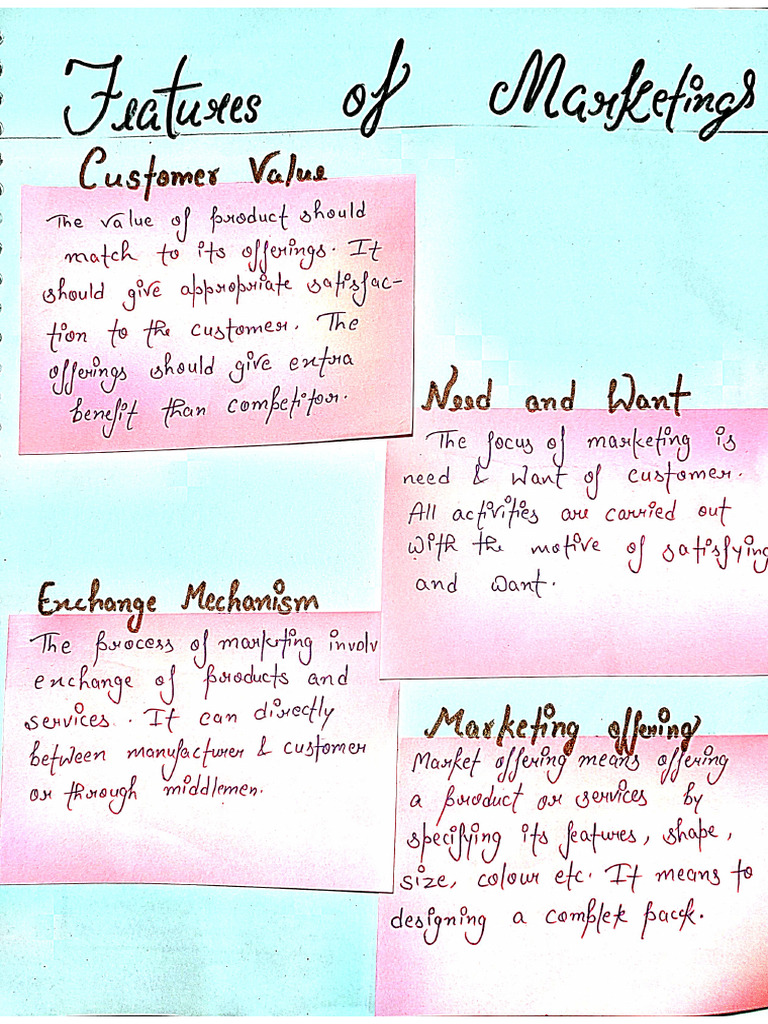 Features of Marketings
Customer Value
The value of product should
match to its offerings. It
should give appropriate satisfac-
tion to the customer. The
offerings should give extra
benefit than competitor.
Need and Want
The focus of marketing is
need & want of customer.
All activities are carried out
with the motive of satisfying
and want.
Exchange Mechanism
The process of marketing involv
exchange of products and
services. It can directly
between manufacturer & customer
or through middlemen.
Marketing offering
Market offering means offering
a product or services by
specifying its features, shape,
size, colour etc. It means to
designing a complete pack.